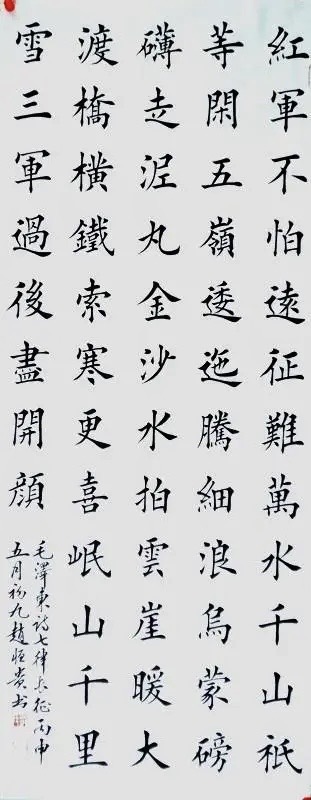 紅軍不怕遠征難萬水千山祇
等閑五嶺逶迤騰細浪烏蒙磅
礴走泥丸金沙水拍雲崖暖大
渡橋橫鐵索寒更喜岷山千里
雪三軍過後盡開顏
毛澤東詩七律长征丙申
五月初九趙恒贵书